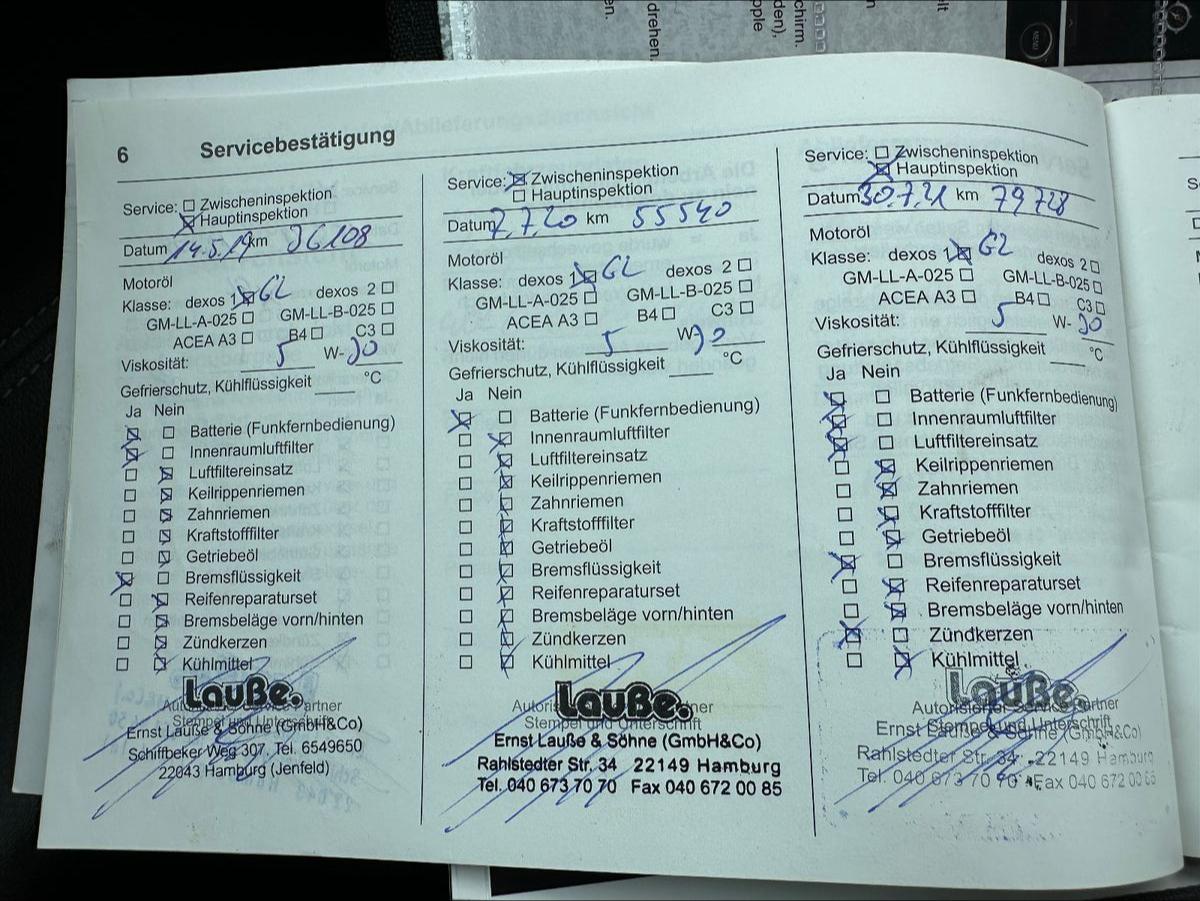 en.
drehen.
chirm.
den),
ople
n
elt
MENU
6 Servicebestätigung
Service: Zwischeninspektion
Hauptinspektion
Datum 14.5.19 km 36108
Motoröl
Klasse: dexos 1 G2 dexos 2
GM-LL-A-025 GM-LL-B-025
ACEA A3 B4 C3
Viskosität: 5 W-30
Gefrierschutz, Kühlflüssigkeit °C
Ja Nein
Batterie (Funkfernbedienung)
Innenraumluftfilter
Luftfiltereinsatz
Keilrippenriemen
Zahnriemen
Kraftstofffilter
Getriebeöl
Bremsflüssigkeit
Reifenreparaturset
Bremsbeläge vorn/hinten
Zündkerzen
Kühlmittel
Lauße.
Autorisierter Service Partner
Stempel und Unterschrift
Ernst Lauße & Söhne (GmbH&Co)
Schiffbeker Weg 307, Tel. 6549650
22043 Hamburg (Jenfeld)
Service: Zwischeninspektion
Hauptinspektion
Datum 2.7.20 km 55540
Motoröl
Klasse: dexos 1 G2 dexos 2
GM-LL-A-025 GM-LL-B-025
ACEA A3 B4 C3
Viskosität: 5 W-30
Gefrierschutz, Kühlflüssigkeit °C
Ja Nein
Batterie (Funkfernbedienung)
Innenraumluftfilter
Luftfiltereinsatz
Keilrippenriemen
Zahnriemen
Kraftstofffilter
Getriebeöl
Bremsflüssigkeit
Reifenreparaturset
Bremsbeläge vorn/hinten
Zündkerzen
Kühlmittel
Lauße.
Stempel und Unterschrift
Ernst Lauße & Söhne (GmbH&Co)
Rahlstedter Str. 34 22149 Hamburg
Tel. 040 673 70 70 Fax 040 672 00 85
Service: Zwischeninspektion
Hauptinspektion
Datum 30.7.21 km 79728
Motoröl
Klasse: dexos 1 G2 dexos 2
GM-LL-A-025 GM-LL-B-025
ACEA A3 B4 C3
Viskosität: 5 W-30
Gefrierschutz, Kühlflüssigkeit °C
Ja Nein
Batterie (Funkfernbedienung)
Innenraumluftfilter
Luftfiltereinsatz
Keilrippenriemen
Zahnriemen
Kraftstofffilter
Getriebeöl
Bremsflüssigkeit
Reifenreparaturset
Bremsbeläge vorn/hinten
Zündkerzen
Kühlmittel
Lauße.
Autorisierter Service Partner
Stempel und Unterschrift
Ernst Lauße & Söhne (GmbH&Co)
Rahlstedter Str. 34 22149 Hamburg
Tel. 040 673 70 70 Fax 040 672 00 85